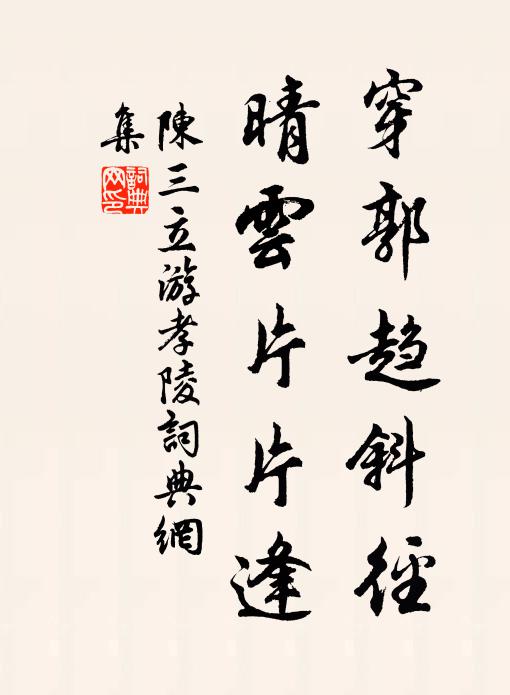 穿郭趨斜徑
晴雲片片逢
陳三立游孝陵詞典網
集
詞典網印